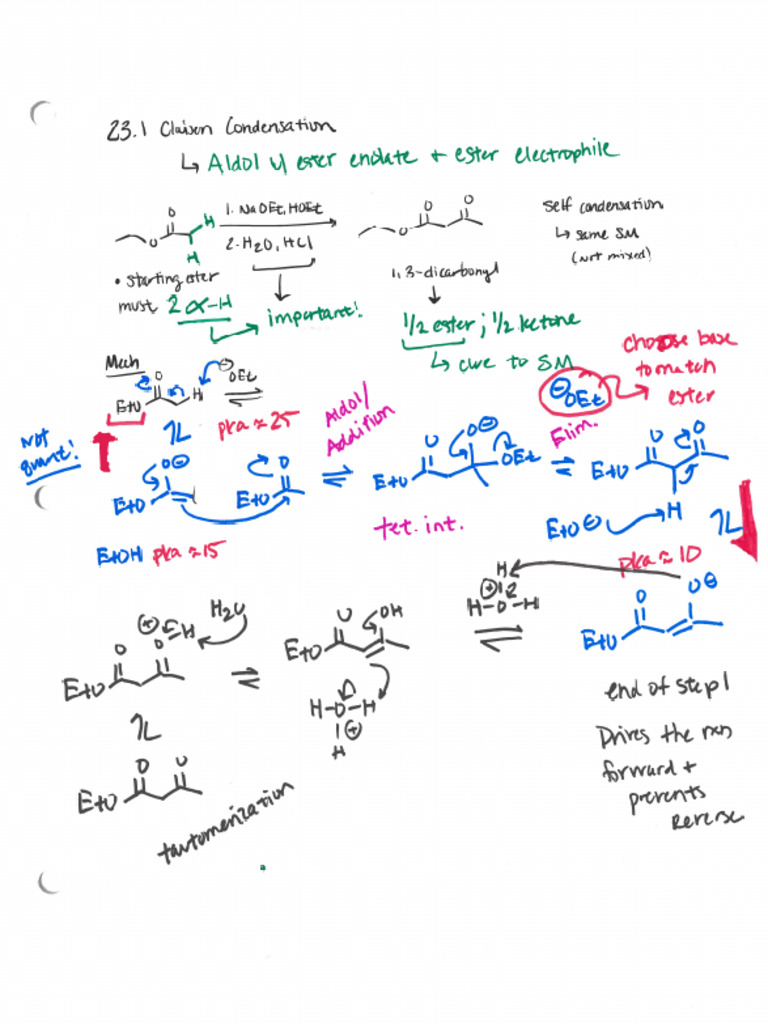 23.1 Claisen Condensation
↳ Aldol w/ ester enolate + ester electrophile
O
O
H
H
1. NaOEt, HOEt
2. H2O, HCl
O
O
O
Self condensation
↳ same SM
(not mixed)
• starting ester
must 2 α-H
important!
1,3-dicarbonyl
1/2 ester ; 1/2 ketone
↳ due to SM
choose base
to match
ester
⊖OEt
Mech
EtO
O
H
⊖OEt
pka ≈ 25
Not
quant!
Aldol/
Addition
Elim.
EtO
O⊖
EtO
O
EtO
O
O⊖
OEt
EtO
O
O
H
EtO⊖
EtOH pka ≈ 15
tet. int.
pka ≈ 10
EtO
O
O
⊕
H
H2O
EtO
O
OH
H
⊕
H-O-H
EtO
O
O⊖
H-O-H
⊕
H
end of step 1
Drives the rxn
forward +
prevents
reverse
EtO
O
O
tautomerization